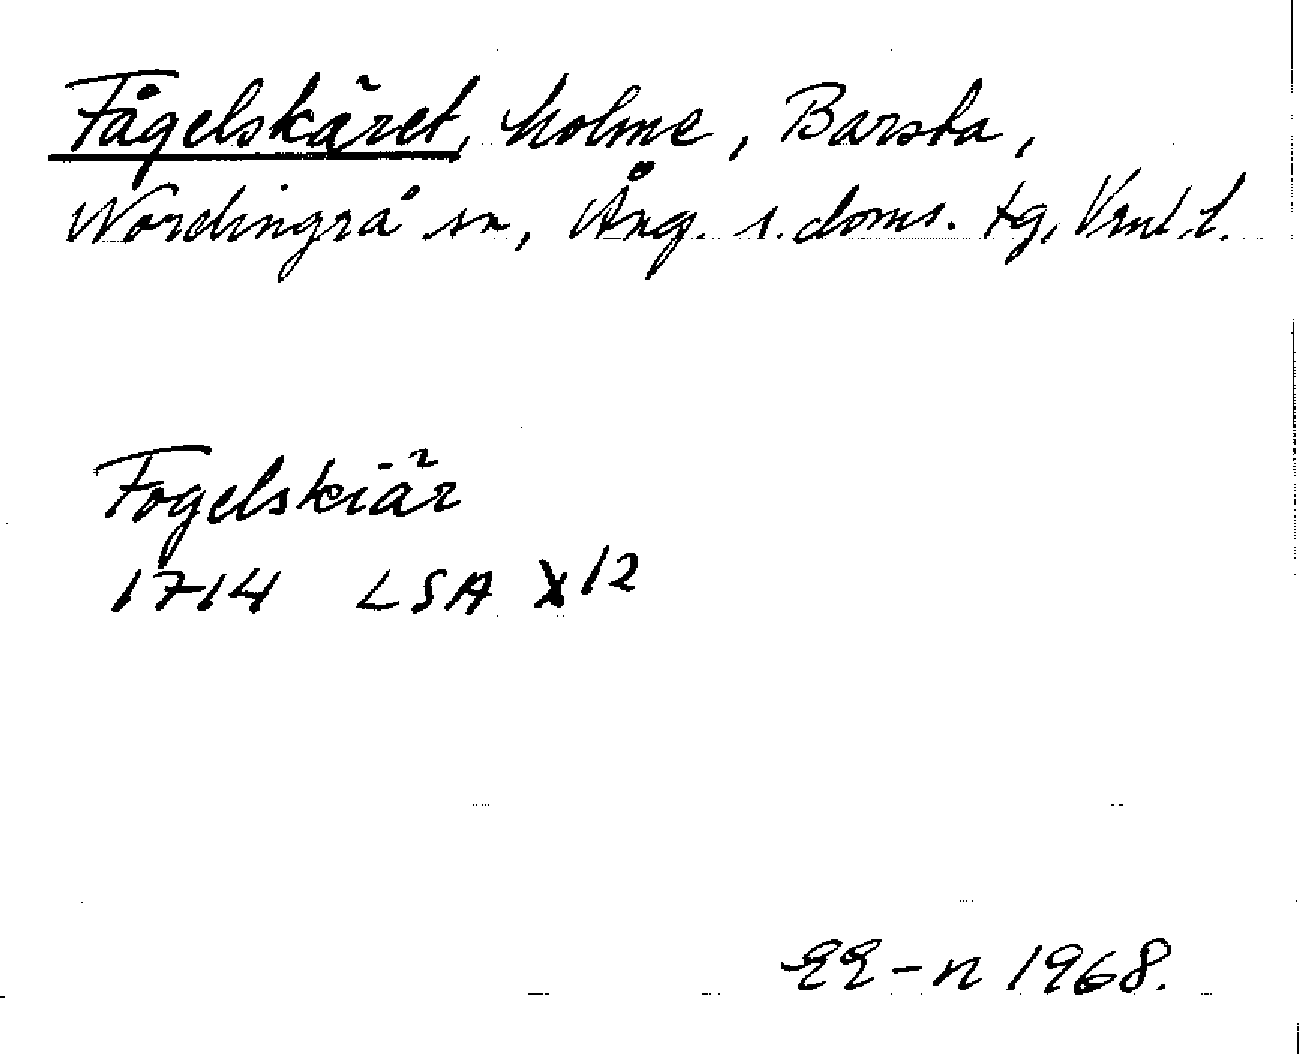 Fågelskäret, holme, Barsta,
Nordingrå sn, Ång. s. doms. tg, Vnl. l.
Fogelskiär
1714 LSA X 12
EE-n 1968.